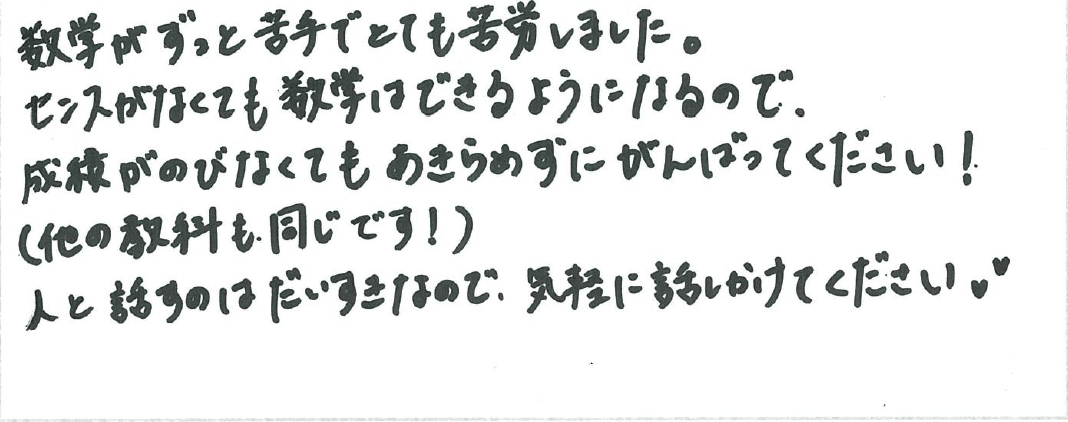 数学がずっと苦手でとても苦労しました。
センスがなくても数学はできるようになるので、
成積がのびなくてもあきらめずにがんばってください！
(他の教科も同じです！)
人と話すのはだいすきなので、気軽に話しかけてください♥♥